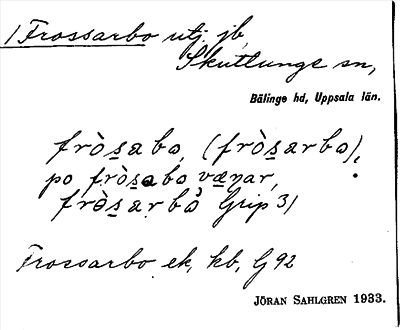 1 Frossarbo utj. jb,
Skuttunge sn,
Bälinge hd, Uppsala län.
fròs̲abo, (fròs̲arbo),
po fròs̲abo væ̲ṇar,
fròs̲arbò Grip 31
Frossarbo ek, kb, G 92
JÖRAN SAHLGREN 1933.